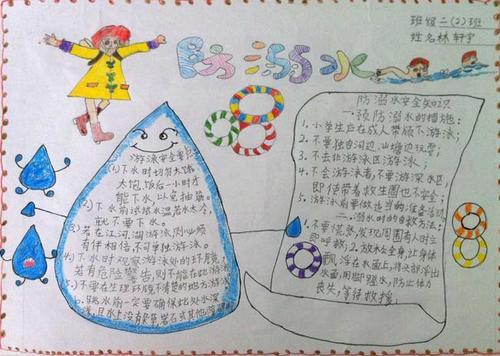 班级二(2)班
姓名林轩宇
防溺水
游泳安全要点
(1)下水时切勿太饿、
太饱。饭后一小时才
能下水,以免抽筋。
(2)下水前试试水温,若水太冷,
就不要下水。
(3)若在江、河、湖、海游泳,则必须
有伴相陪,不可单独游泳。
(4)下水时观察游泳处的环境,
若有危险警告,则不能在此游泳
(5)不要在
地方游泳
(6)跳水前一定要确保此处水深
且水上没有
岩石或其他
防溺水安全知识
一、预防溺水的措施:
1.小学生应在成人带领下游泳;
2.不要独自河边、山塘边玩耍;
3.不去非游泳区游泳;
4.不会游泳者,不要游深水区,
即使带着救生圈也不安全;
5.游泳前要做适当的准备活动
二、溺水时的自救方法:
1.不要慌张,发现周围有人时立
即呼救;2.放松全身,让身体
飘浮在水面上,将头部浮出
水面,用脚踢水,防止体力
丧失,等待救援;